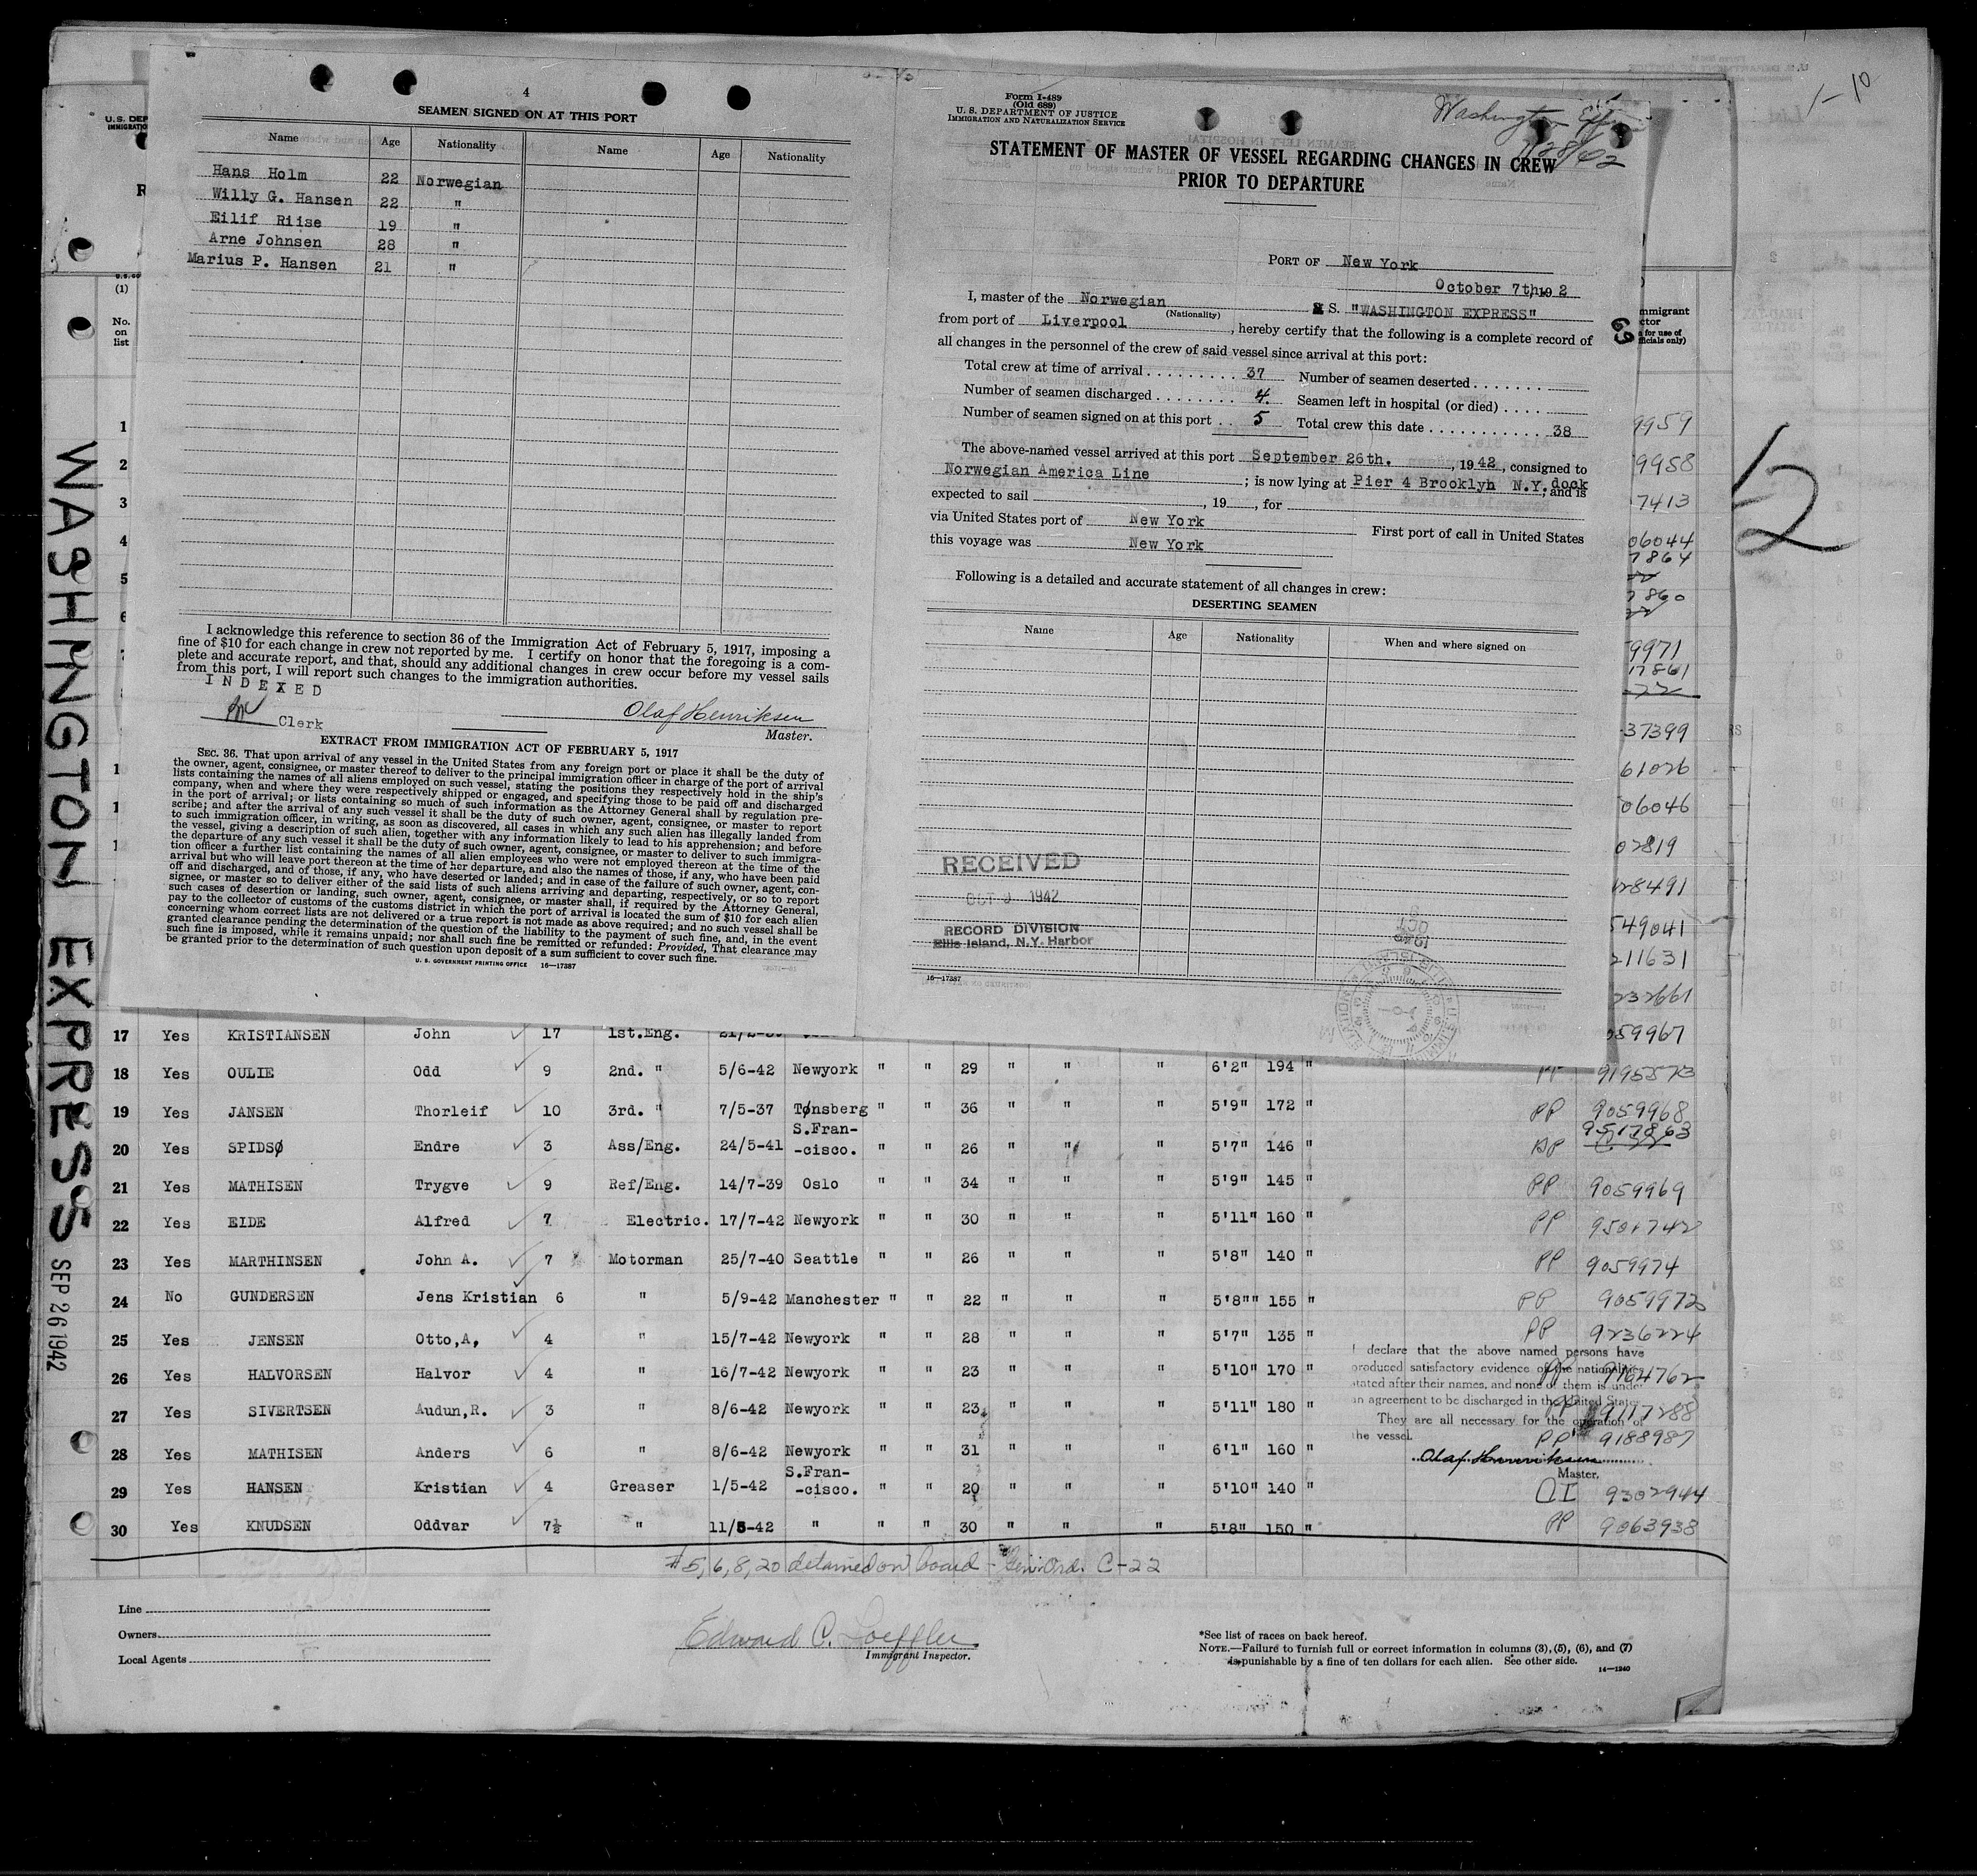 4
SEAMEN SIGNED ON AT THIS PORT
Name Age Nationality Name Age Nationality
Hans Holm 22 Norwegian
Willy G. Hansen 22 "
Eilif Riise 19 "
Arne Johnsen 28 "
Marius P. Hansen 21 "
I acknowledge this reference to section 36 of the Immigration Act of February 5, 1917, imposing a
fine of $10 for each change in crew not reported by me. I certify on honor that the foregoing is a com-
plete and accurate report, and that, should any additional changes in crew occur before my vessel sails
from this port, I will report such changes to the immigration authorities.
INDEXED
Clerk
Olaf Henriksen
Master.
EXTRACT FROM IMMIGRATION ACT OF FEBRUARY 5, 1917
SEC. 36. That upon arrival of any vessel in the United States from any foreign port or place it shall be the duty of
the owner, agent, consignee, or master thereof to deliver to the principal immigration officer in charge of the port of arrival
lists containing the names of all aliens employed on such vessel, stating the positions they respectively hold in the ship's
company, when and where they were respectively shipped or engaged, and specifying those to be paid off and discharged
in the port of arrival; or lists containing so much of such information as the Attorney General shall by regulation pre-
scribe; and after the arrival of any such vessel it shall be the duty of such owner, agent, consignee, or master to report
to such immigration officer, in writing, as soon as discovered, all cases in which any such alien has illegally landed from
the vessel, giving a description of such alien, together with any information likely to lead to his apprehension; and before
the departure of any such vessel it shall be the duty of such owner, agent, consignee, or master to deliver to such immigra-
tion officer a further list containing the names of all alien employees who were not employed thereon at the time of the
arrival but who will leave port thereon at the time of her departure, and also the names of those, if any, who have been paid
off and discharged, and of those, if any, who have deserted or landed; and in case of the failure of such owner, agent, con-
signee, or master so to deliver either of the said lists of such aliens arriving and departing, respectively, or so to report
such cases of desertion or landing, such owner, agent, consignee, or master shall, if required by the Attorney General,
pay to the collector of customs of the customs district in which the port of arrival is located the sum of $10 for each alien
concerning whom correct lists are not delivered or a true report is not made as above required; and no such vessel shall be
granted clearance pending the determination of the question of the liability to the payment of such fine, and, in the event
such fine is imposed, while it remains unpaid; nor shall such fine be remitted or refunded: Provided, That clearance may
be granted prior to the determination of such question upon deposit of a sum sufficient to cover such fine.
U. S. GOVERNMENT PRINTING OFFICE 16—17387
Form I-489
(Old 689)
U. S. DEPARTMENT OF JUSTICE
IMMIGRATION AND NATURALIZATION SERVICE
Washington
STATEMENT OF MASTER OF VESSEL REGARDING CHANGES IN CREW
PRIOR TO DEPARTURE
PORT OF New York
October 7th, 192
I, master of the Norwegian S. "WASHINGTON EXPRESS"
(Nationality)
from port of Liverpool, hereby certify that the following is a complete record of
all changes in the personnel of the crew of said vessel since arrival at this port:
Total crew at time of arrival 37 Number of seamen deserted
Number of seamen discharged 4. Seamen left in hospital (or died)
Number of seamen signed on at this port 5 Total crew this date 38
The above-named vessel arrived at this port September 26th., 1942, consigned to
Norwegian America Line; is now lying at Pier 4 Brooklyn N.Y. dock; and is
expected to sail , 19 , for
via United States port of New York First port of call in United States
this voyage was New York
Following is a detailed and accurate statement of all changes in crew:
DESERTING SEAMEN
Name Age Nationality When and where signed on
RECEIVED
1942
RECORD DIVISION
Ellis Island, N.Y. Harbor
16—17387
1-10
12
63
(1)
No.
on
list
1 9959
2 9958
3 7413
4 06044
7864
5
6
9971
17861
37399
61026
06046
02819
28491
549041
211631
232661
WASHINGTON EXPRESS
SEP 26 1942
17 Yes KRISTIANSEN John 17 1st.Eng. 059967
18 Yes OULIE Odd 9 2nd. " 5/6-42 Newyork " " 29 " " " 6'2" 194 "
19 Yes JANSEN Thorleif 10 3rd. " 7/5-37 Tønsberg " " 36 " " " 5'9" 172 " PP 9059968
20 Yes SPIDSØ Endre 3 Ass/Eng. 24/5-41 S.Fran- -cisco. " " 26 " " " 5'7" 146 " PP 9517863
21 Yes MATHISEN Trygve 9 Ref/Eng. 14/7-39 Oslo " " 34 " " " 5'9" 145 " PP 9059969
22 Yes EIDE Alfred 7 Electric. 17/7-42 Newyork " " 30 " " " 5'11" 160 " PP 9501742
23 Yes MARTHINSEN John A. 7 Motorman 25/7-40 Seattle " " 26 " " " 5'8" 140 " PP 9059974
24 No GUNDERSEN Jens Kristian 6 " 5/9-42 Manchester " " 22 " " " 5'8"" 155 " PP 9059972
25 Yes JENSEN Otto,A, 4 " 15/7-42 Newyork " " 28 " " " 5'7" 135 " PP 9236224
26 Yes HALVORSEN Halvor 4 " 16/7-42 Newyork " " 23 " " " 5'10" 170 " PP 9164762
27 Yes SIVERTSEN Audun,R. 3 " 8/6-42 Newyork " " 23 " " " 5'11" 180 " PP 9117288
28 Yes MATHISEN Anders 6 " 8/6-42 Newyork " " 31 " " " 6'1" 160 " PP 9188987
29 Yes HANSEN Kristian 4 Greaser 1/5-42 S.Fran- -cisco. " " 20 " " " 5'10" 140 " 9302944
30 Yes KNUDSEN Oddvar 7½ " 11/5-42 " " " 30 " " " 5'8" 150 " PP 9063938
I declare that the above named persons have
produced satisfactory evidence of the nationalities
stated after their names, and none of them is under
an agreement to be discharged in the United States
They are all necessary for the operation of
the vessel.
Olaf Henriksen
Master.
# 5, 6, 8, 20 detained on board - Gen. Ord. C-22
Line
Owners
Local Agents
Edward C. Loeffler
Immigrant Inspector.
*See list of races on back hereof.
NOTE.—Failure to furnish full or correct information in columns (3), (5), (6), and (7)
is punishable by a fine of ten dollars for each alien. See other side.
14—1240